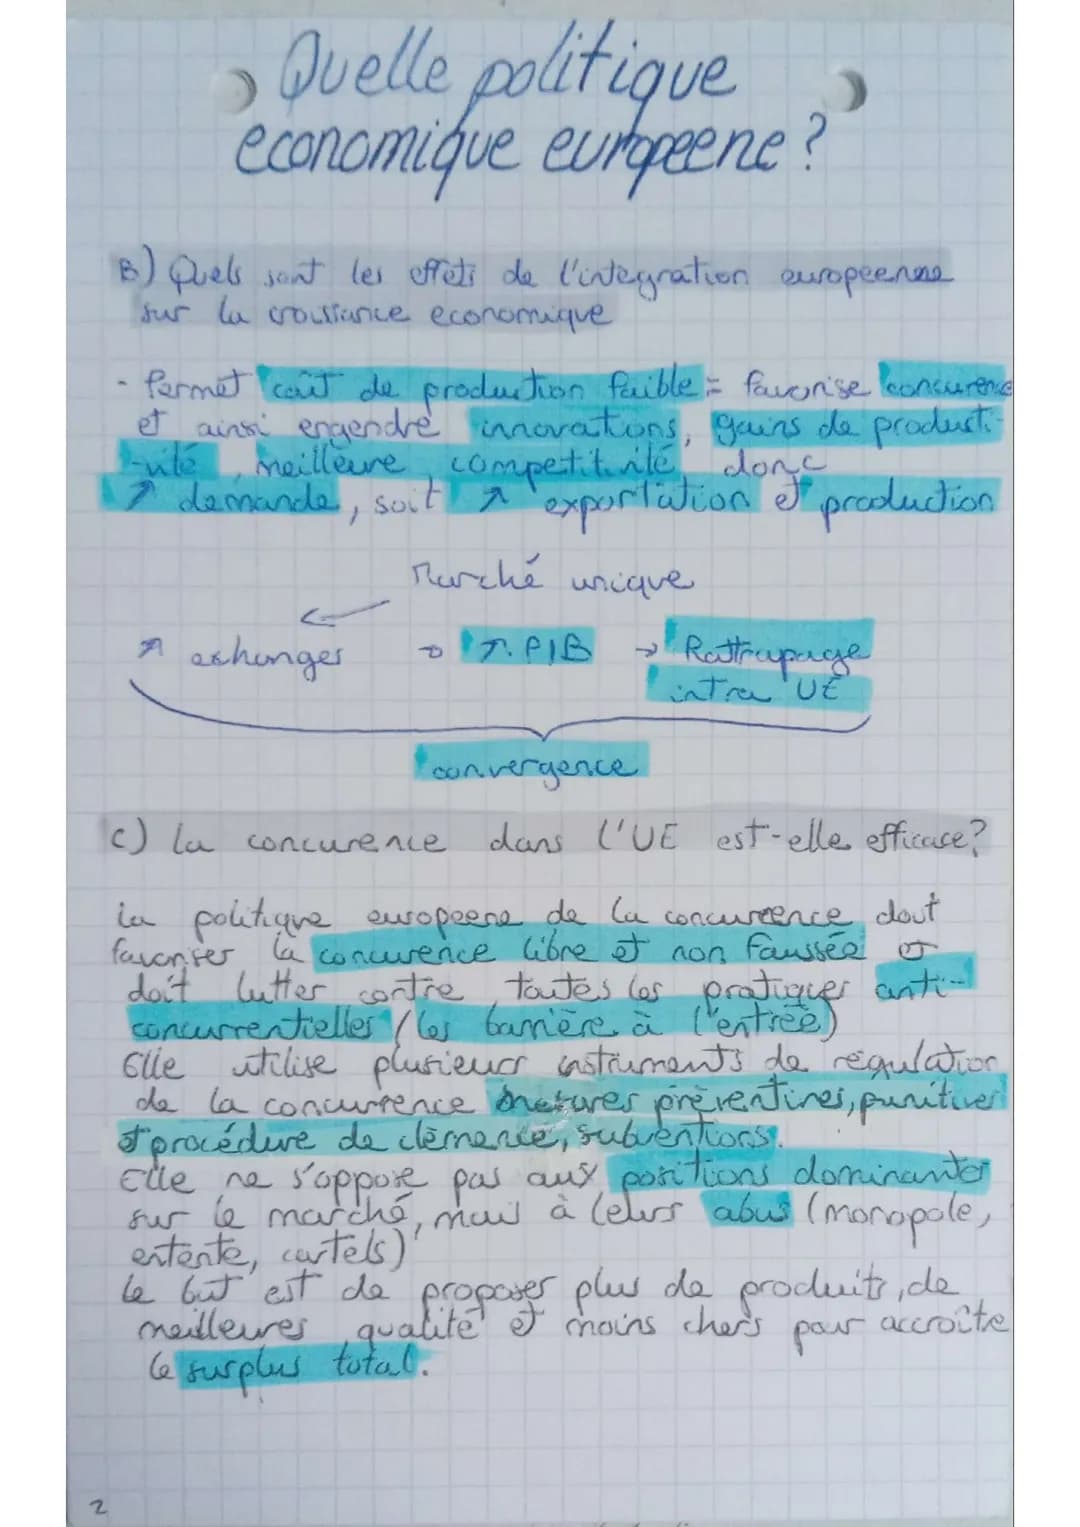 Quelle politique
economique europeene ?
B) Quels sont les effets de l'integration europeenne
sur la croissance economique
- Permet coût de production faible = favorise concurence
et ainsi engendre innovations, gains de producti-
-vité, meilleure competitivité donc
↗ demande, soit ↗ exportation et production
Marché unique
↗ exhanges → ↗ PIB → Rattrapage
intra UE
convergence
C) la concurence dans l'UE est-elle efficace?
La politique europeene de la concurrence doit
favoriser la concurence libre et non faussée et
doit lutter contre toutes les pratiques anti-
concurrentielles (les barrière à l'entrée)
Elle utilise plusieurs instruments de régulation
de la concurrence mesures préventives, punitives
et procédure de clémence, subventions.
Elle ne s'oppose pas aux positions dominantes
sur le marché, mais à leurs abus (monopole,
entente, cartels)
Le but est de proposer plus de produits, de
meilleures qualité et moins chers pour accroître
le surplus total.
2